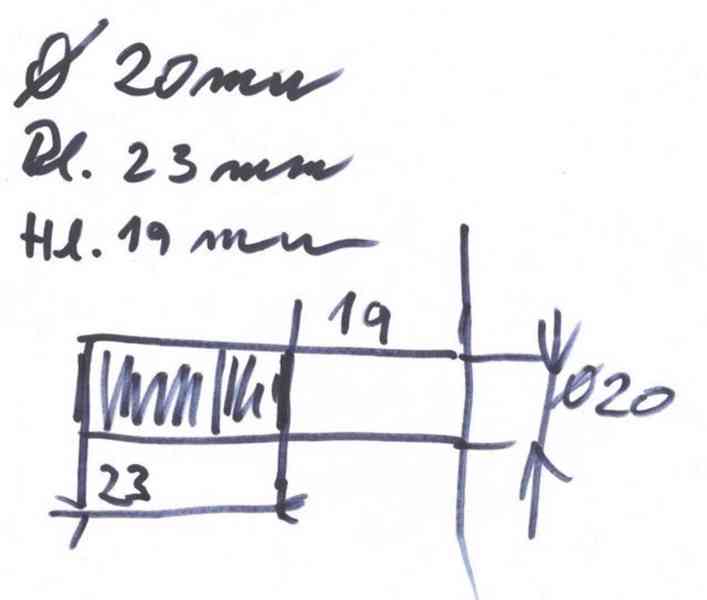 Ø 20mm
Dl. 23 mm
Hl. 19 mm
19
Ø20
23